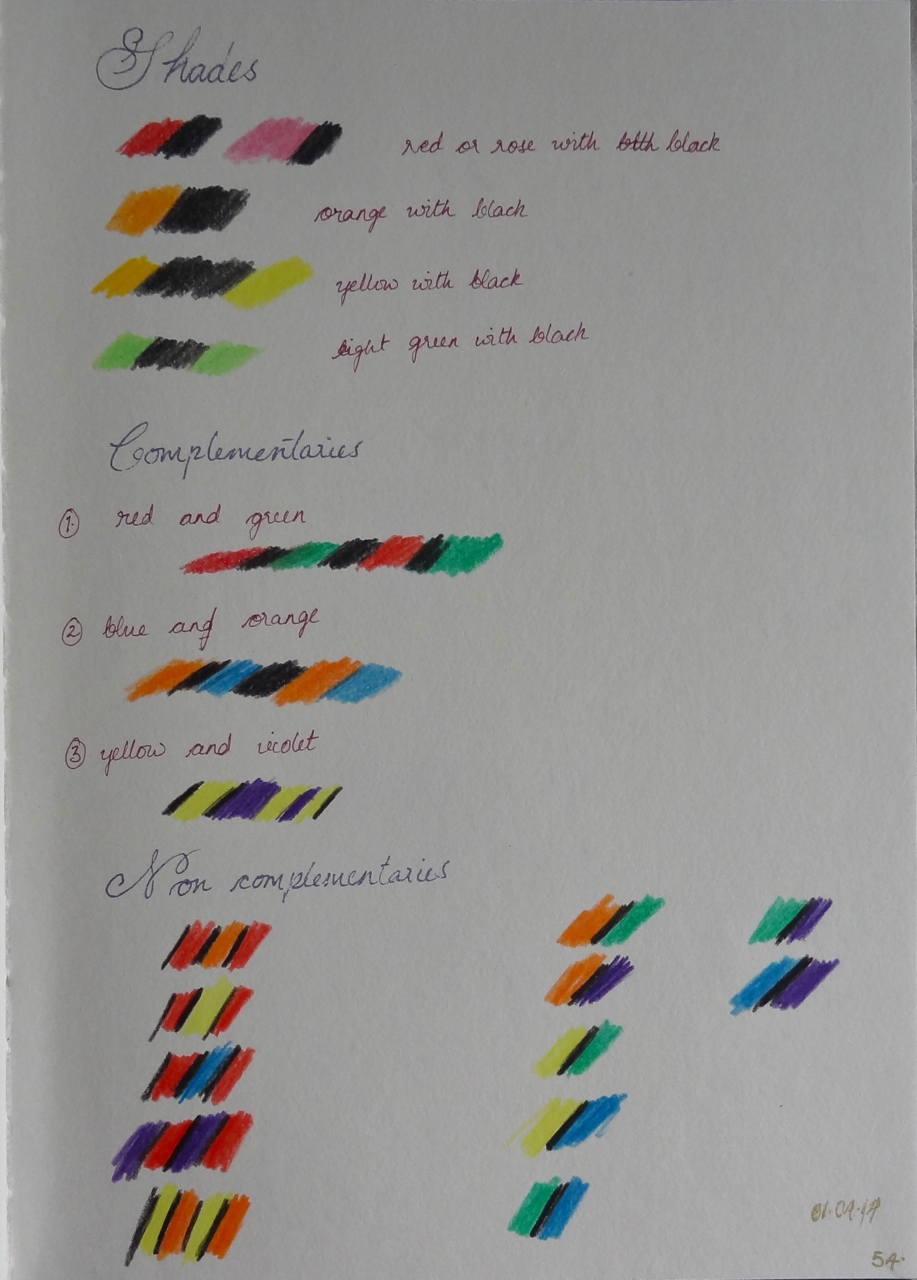 Shades
red or rose with black
orange with black
yellow with black
light green with black
Complementaries
1. red and green
2 blue and orange
3 yellow and violet
Non complementaries
54.